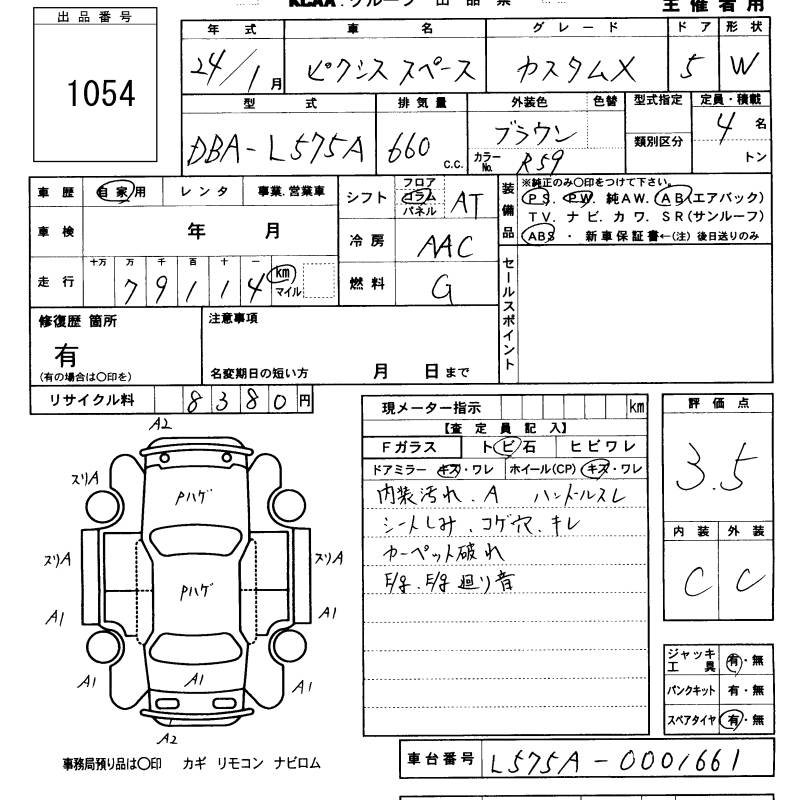 KCAA・グループ 出品票
主催者用
出品番号
1054
年式 車名 グレード ドア 形状
24/1月 ピクシススペース カスタムX 5 W
型式 排気量 外装色 色替 型式指定 定員・積載
DBA-L575A 660 c.c. ブラウン カラーNo. R59 類別区分 4名 トン
車歴 自家用 レンタ 事業.営業車
シフト フロア コラム パネル AT
装備品 ※純正のみ〇印をつけて下さい。
PS. PW. 純AW. AB(エアバック)
TV. ナビ. カワ. SR(サンルーフ)
ABS ・ 新車保証書←(注) 後日送りのみ
車検 年 月
冷房 AAC
走行 十万 万 千 百 十 一
79114 km マイル
燃料 G
セールスポイント
修復歴 箇所 注意事項
有
(有の場合は〇印を) 名変期日の短い方 月 日まで
リサイクル料 8380円
現メーター指示 km
【査定員記入】
Fガラス トビ石 ヒビワレ
ドアミラー キズ・ワレ ホイール(CP) キズ・ワレ
内装汚れ.A ハンドルスレ
シートしみ.コゲ穴.キレ
カーペット破れ
E/g.E/g廻り音
評価点
3.5
内装 外装
C C
A2
スリA Pハゲ
スリA Pハゲ スリA
A1 A1
A1 A1 A1
A2
ジャッキ工具 有・無
パンクキット 有・無
スペアタイヤ 有・無
事務局預り品は〇印 カギ リモコン ナビロム
車台番号 L575A-0001661